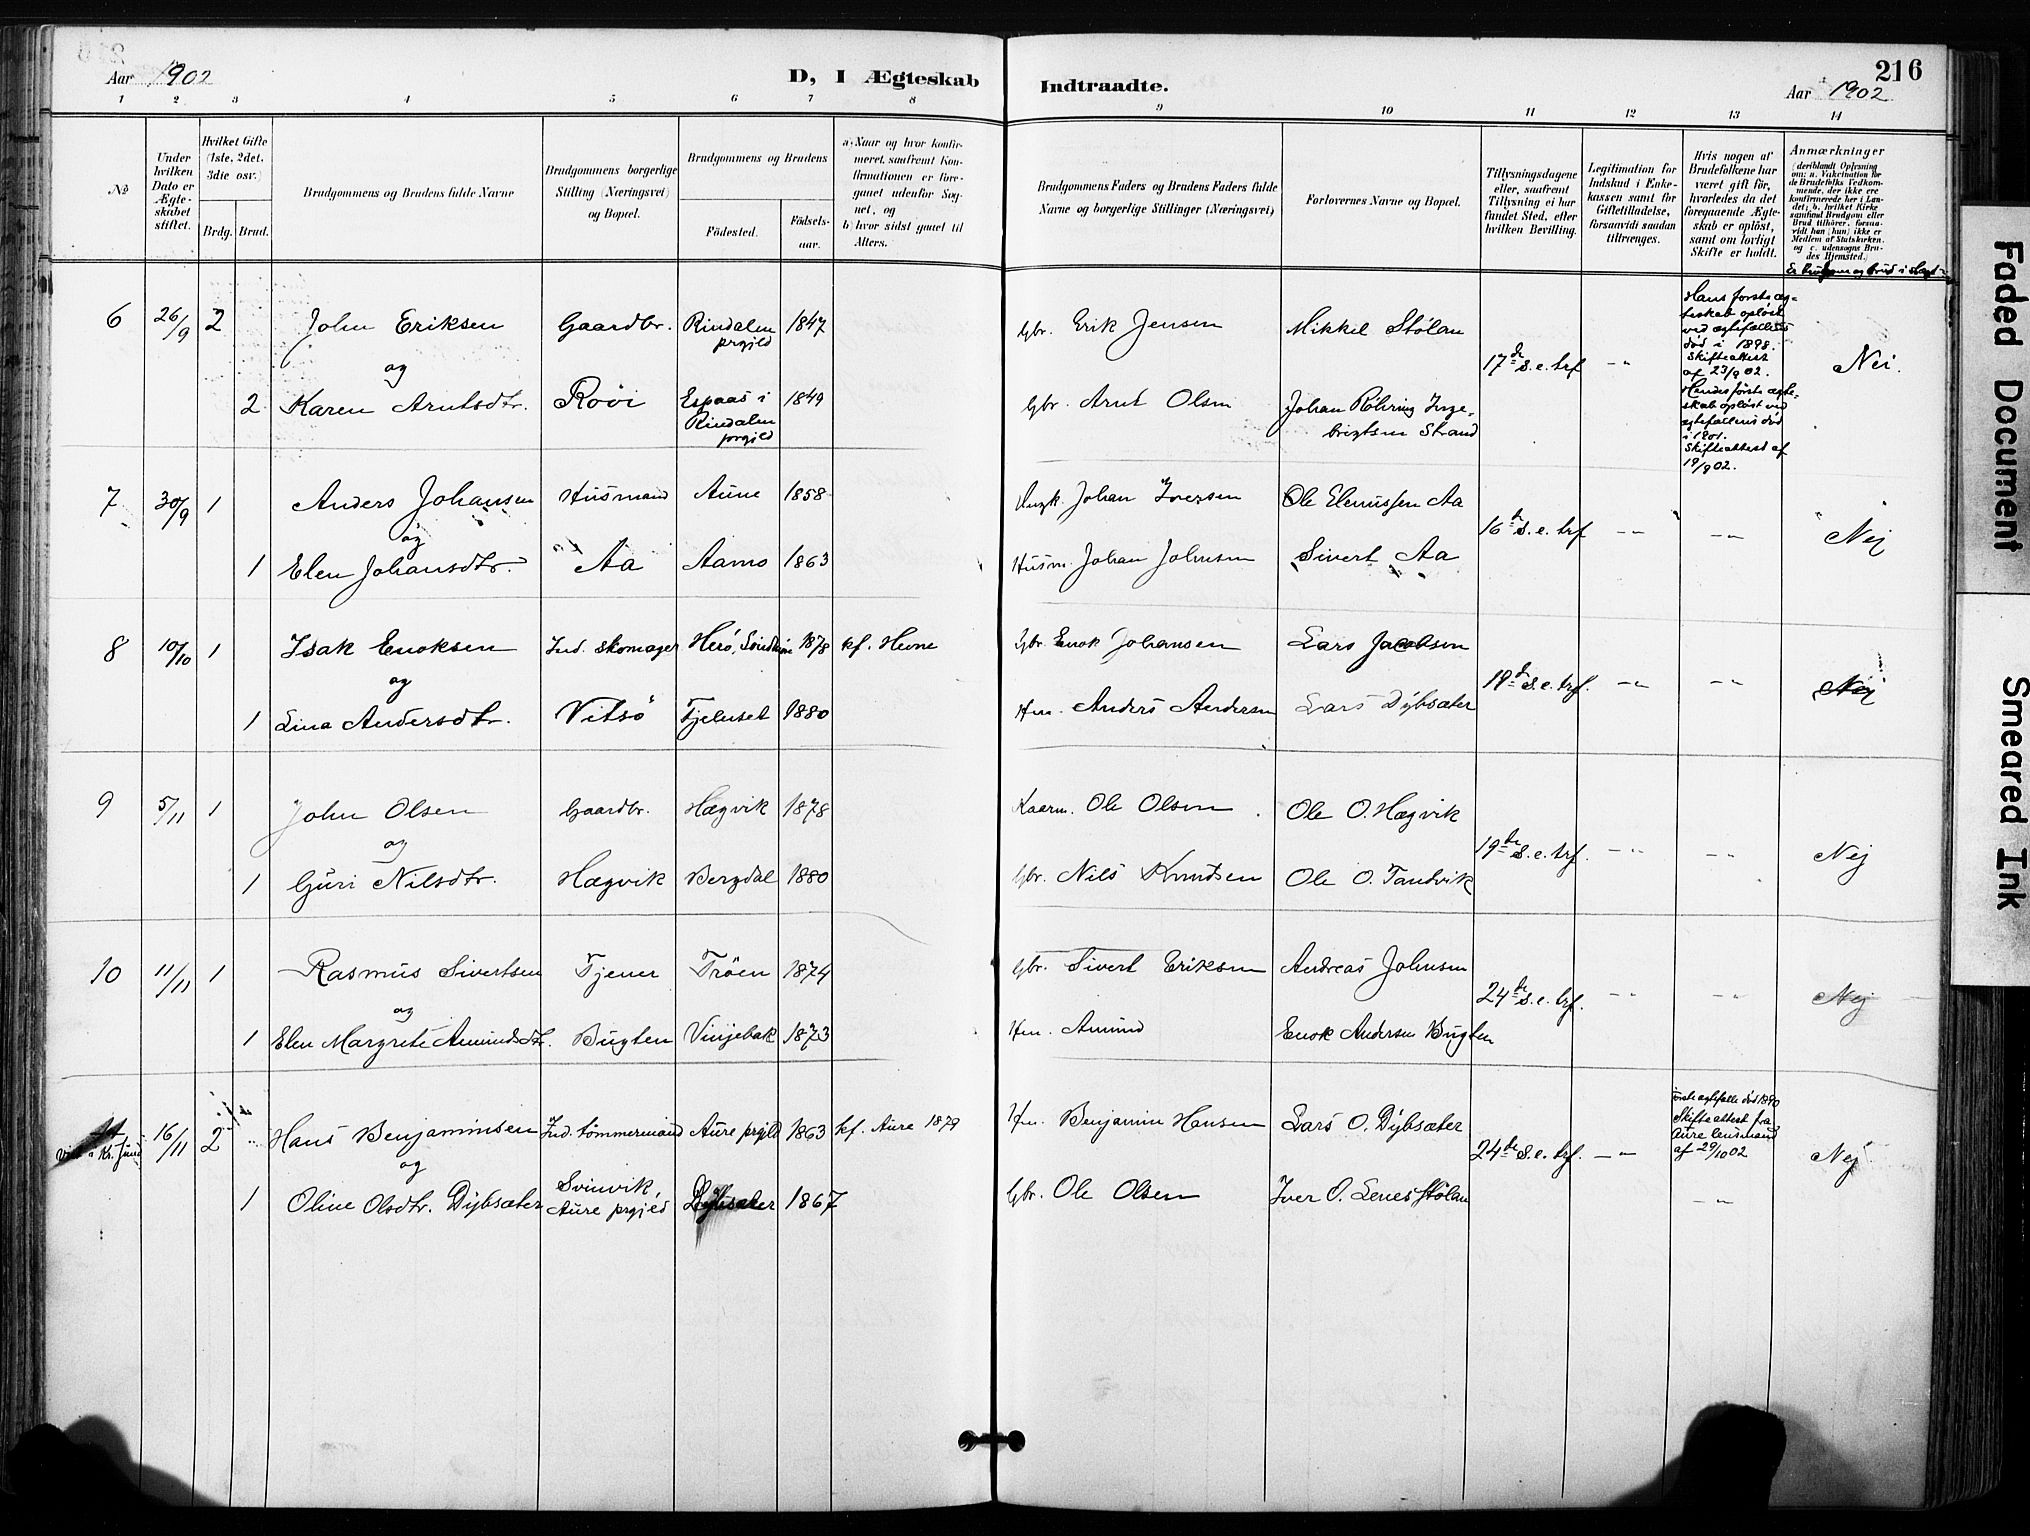 Aar 1902
D, I Ægteskab Indtraadte.
216
Aar 1902
1 2 3 4 5 6 7 8 9 10 11 12 13 14
No
Under hvilken Dato er Ægteskabet stiftet.
Hvilket Gifte (1ste, 2det, 3die osv.)
Brdg. Brud.
Brudgommens og Brudens fulde Navne
Brudgommens borgerlige Stilling (Næringsvei) og Bopæl.
Brudgommens og Brudens
Födested.
Födselsaar.
a) Naar og hvor konfirmeret, saafremt Konfirmationen er foregaaet udenfor Sognet, og
b) hvor sidst gaaet til Alters.
Brudgommens Faders og Brudens Faders fulde Navne og borgerlige Stillinger (Næringsvei)
Forlovernes Navne og Bopæl.
Tillysningsdagene eller, saafremt Tillysning ei har fundet Sted, efter hvilken Bevilling.
Legitimation for Indskud i Enkekassen samt for Giftetilladelse, forsaavidt saadan tiltrænges.
Hvis nogen af Brudefolkene har været gift før, hvorledes da det foregaaende Ægteskab er opløst, samt om lovligt Skifte er holdt.
Anmærkninger (deriblandt Oplysning om: a. Vakcination for de Brudefolks Vedkommende, der ikke ere konfirmerede her i Landet; b. hvilket Kirkesamfund Brudgom eller Brud tilhører, forsaavidt han (hun) ikke er Medlem af Statskirken, og c. udensogns Brudes Hjemsted.)
6 26/9 2 John Eriksen Gaardbr. Rindalen prgjeld 1847 Gbr. Erik Jensen Mikkel Stølan
og
17de S. e. trf. -"- Nei.
Hans første ægteskab opløst ved ægtefællens død i 1898. Skifteattest af 23/9 02.
2 Karen Arntsdtr. Røvi Espaas i Rindalen prgjeld 1849 Gbr. Arnt Olsen Johan Röhring Ingebrigtsen Strand
Hendes første ægteskab opløst ved ægtefællens død i 1901. Skifteattest af 19/9 02.
7 30/9 1 Anders Johansen Husmand Aune 1858 Johan Iversen Ole Elenussen Aa
og
16de S. e. trf. -"- -"- Nej
1 Elen Johansdtr. Aa Aamo 1863 Husm. Johan Johnsen Sivert Aa
8 10/10 1 Isak Enoksen Ind. skomager Herö, 1878 kf. Hevne Gbr. Enok Johansen Lars Jacobsen
og
18de S. e. trf. -"- -"- Nej
1 Lina Andersdtr. Vitsö Fjelnset 1880 Hm. Anders Andersen Lars Dybsæter
9 5/11 1 John Olsen Gaardbr. Hægvik 1878 Kaarm. Ole Olsen Ole O. Hægvik
og
19de S. e. trf. -"- -"- Nej
1 Guri Nilsdtr. Hægvik Bergdal 1880 Gbr. Nils Knudsen Ole O. Tandvik
10 11/11 1 Rasmus Sivertsen Tjener Trøen 1874 Gbr. Sivert Eriksen Andreas Johnsen
og
24de S. e. trf. -"- -"- Nej
1 Elen Margrete Amundsdtr. Bugten Vinjebak 1873 Hm. Amund Enok Andersen Bugten
16/11 2 Hans Benjaminsen Ind. tömmermand Aure prgjld 1863 kf. Aure 1879 Hm. Benjamin Hansen Lars O. Dybsæter
og
24de S. e. trf. -"- Nej
ægtefælle død 1890 Skifteattest fra Aure lensmand af 29/10 02
1 Oline Olsdtr. Dybsæter Svinvik, Aure prgjeld Dybsæter 1867 Gbr. Ole Olsen Iver O. Lenes Stølan -"-
Faded Document
Smeared Ink